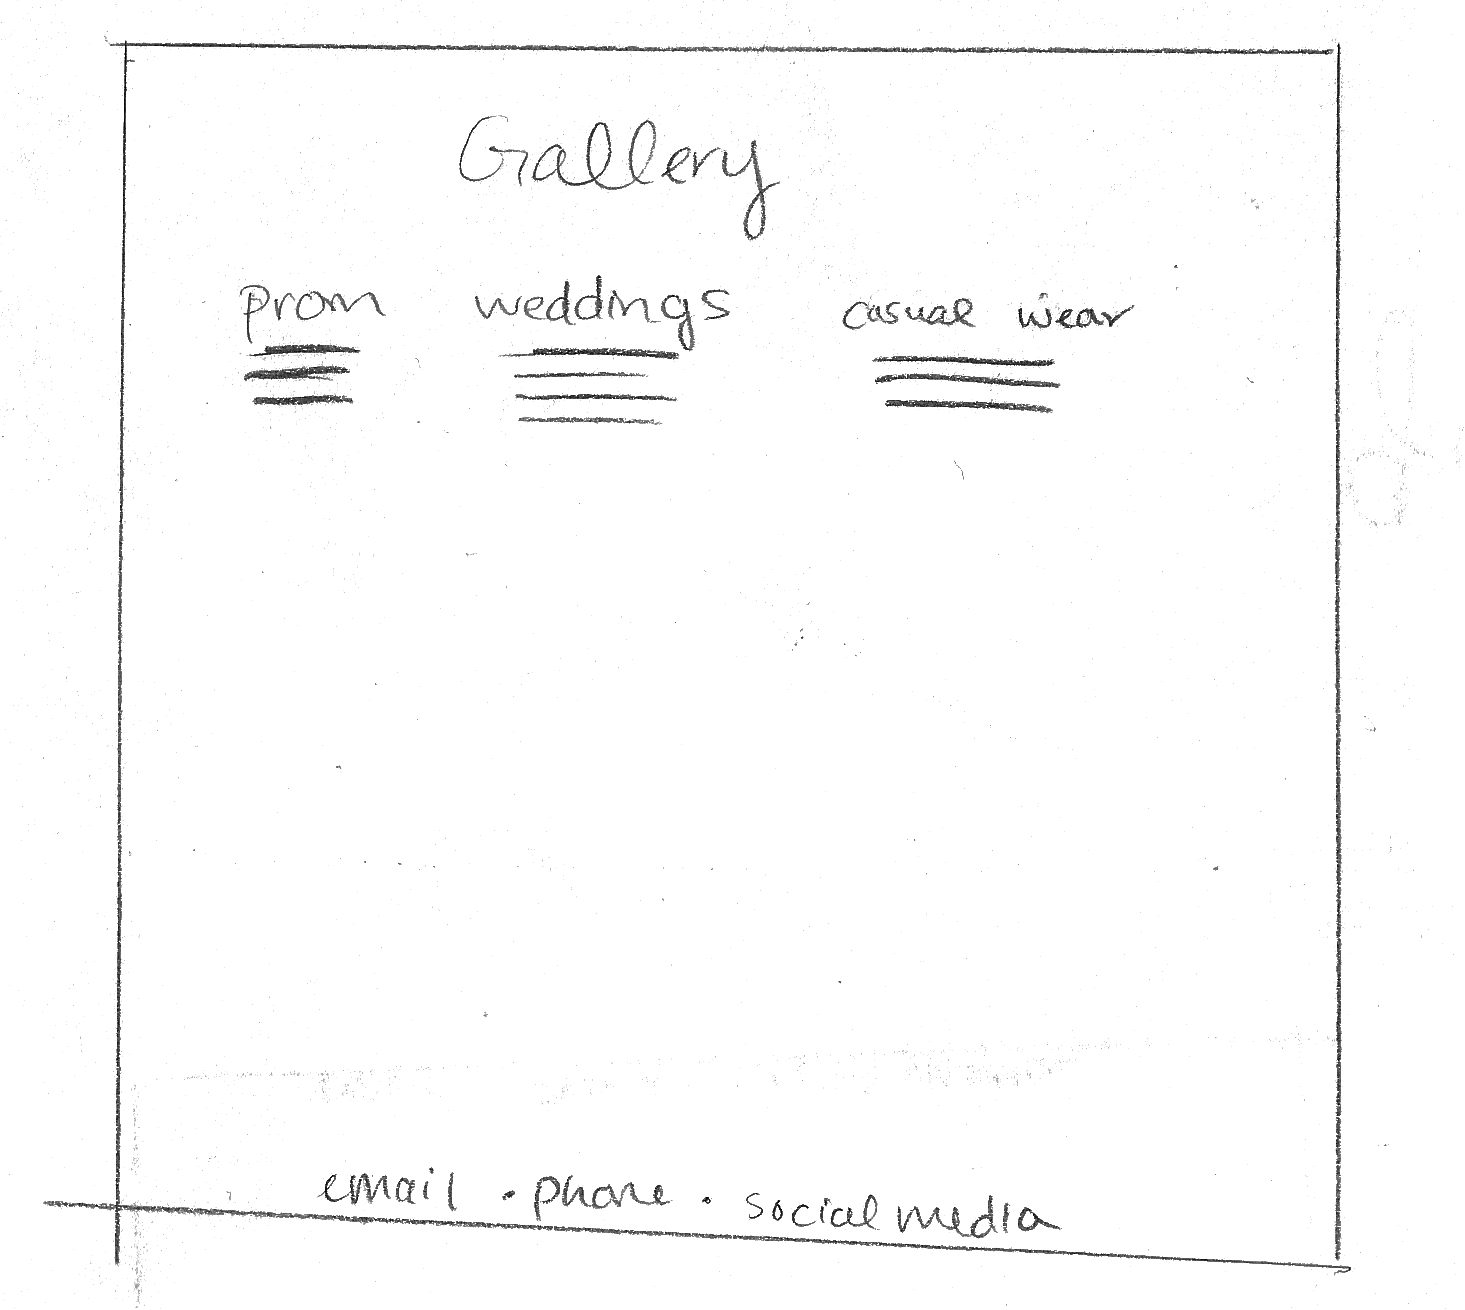 Gallery
prom weddings casual wear
email · phone · social media